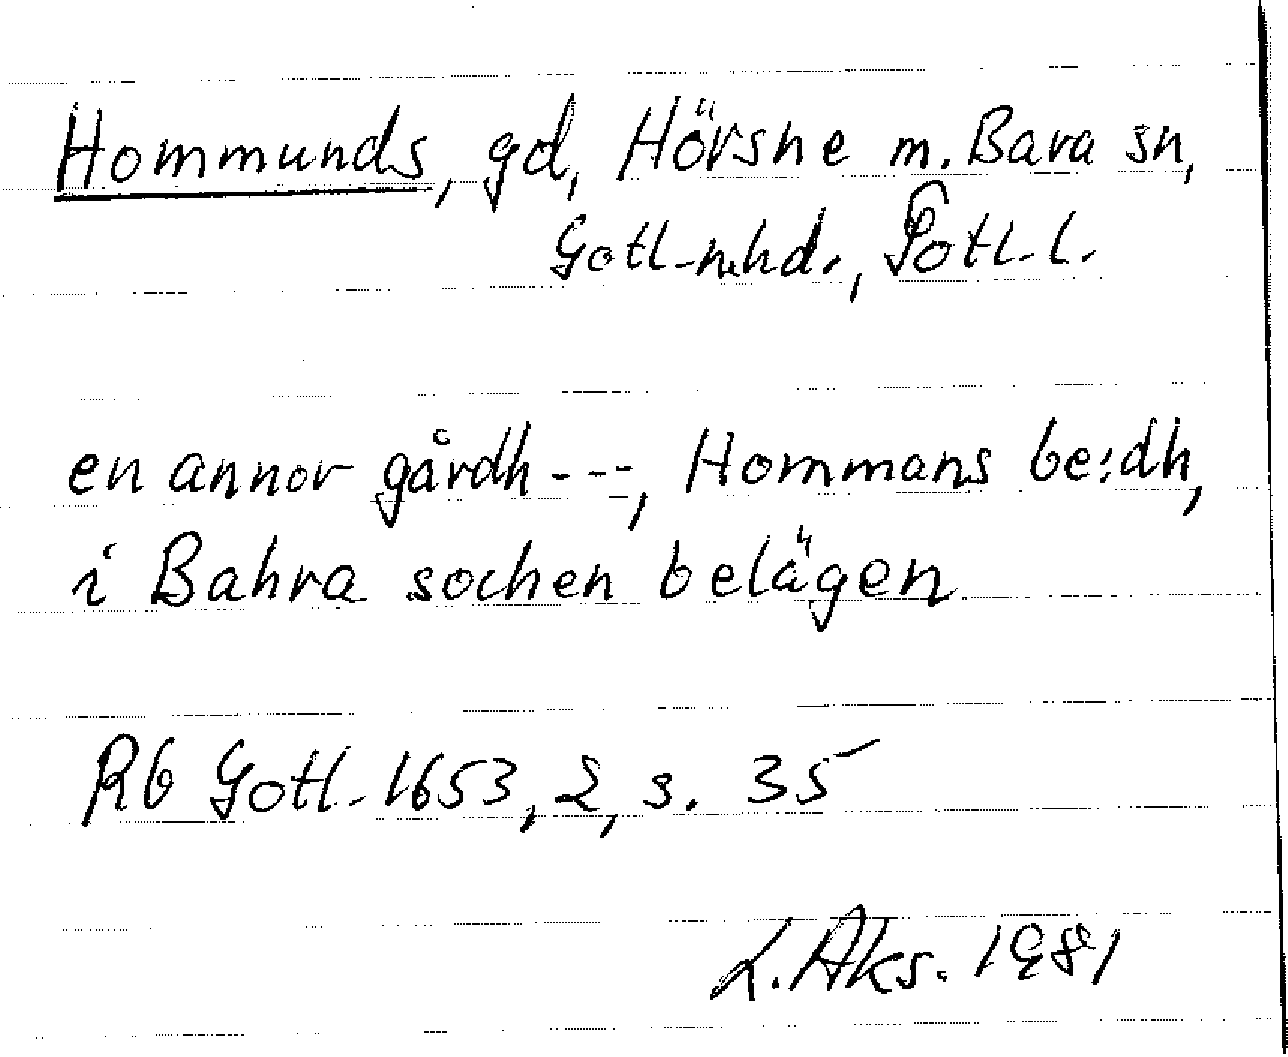 Hommunds, gd, Hörsne m. Bara sn,
Gotl. n. hd., Gotl. l.
en annor gårdh ---, Hommans be:dh,
i Bahra sochen belägen
Rb Gotl. 1653, 2, s. 35
L. Aks. 1981